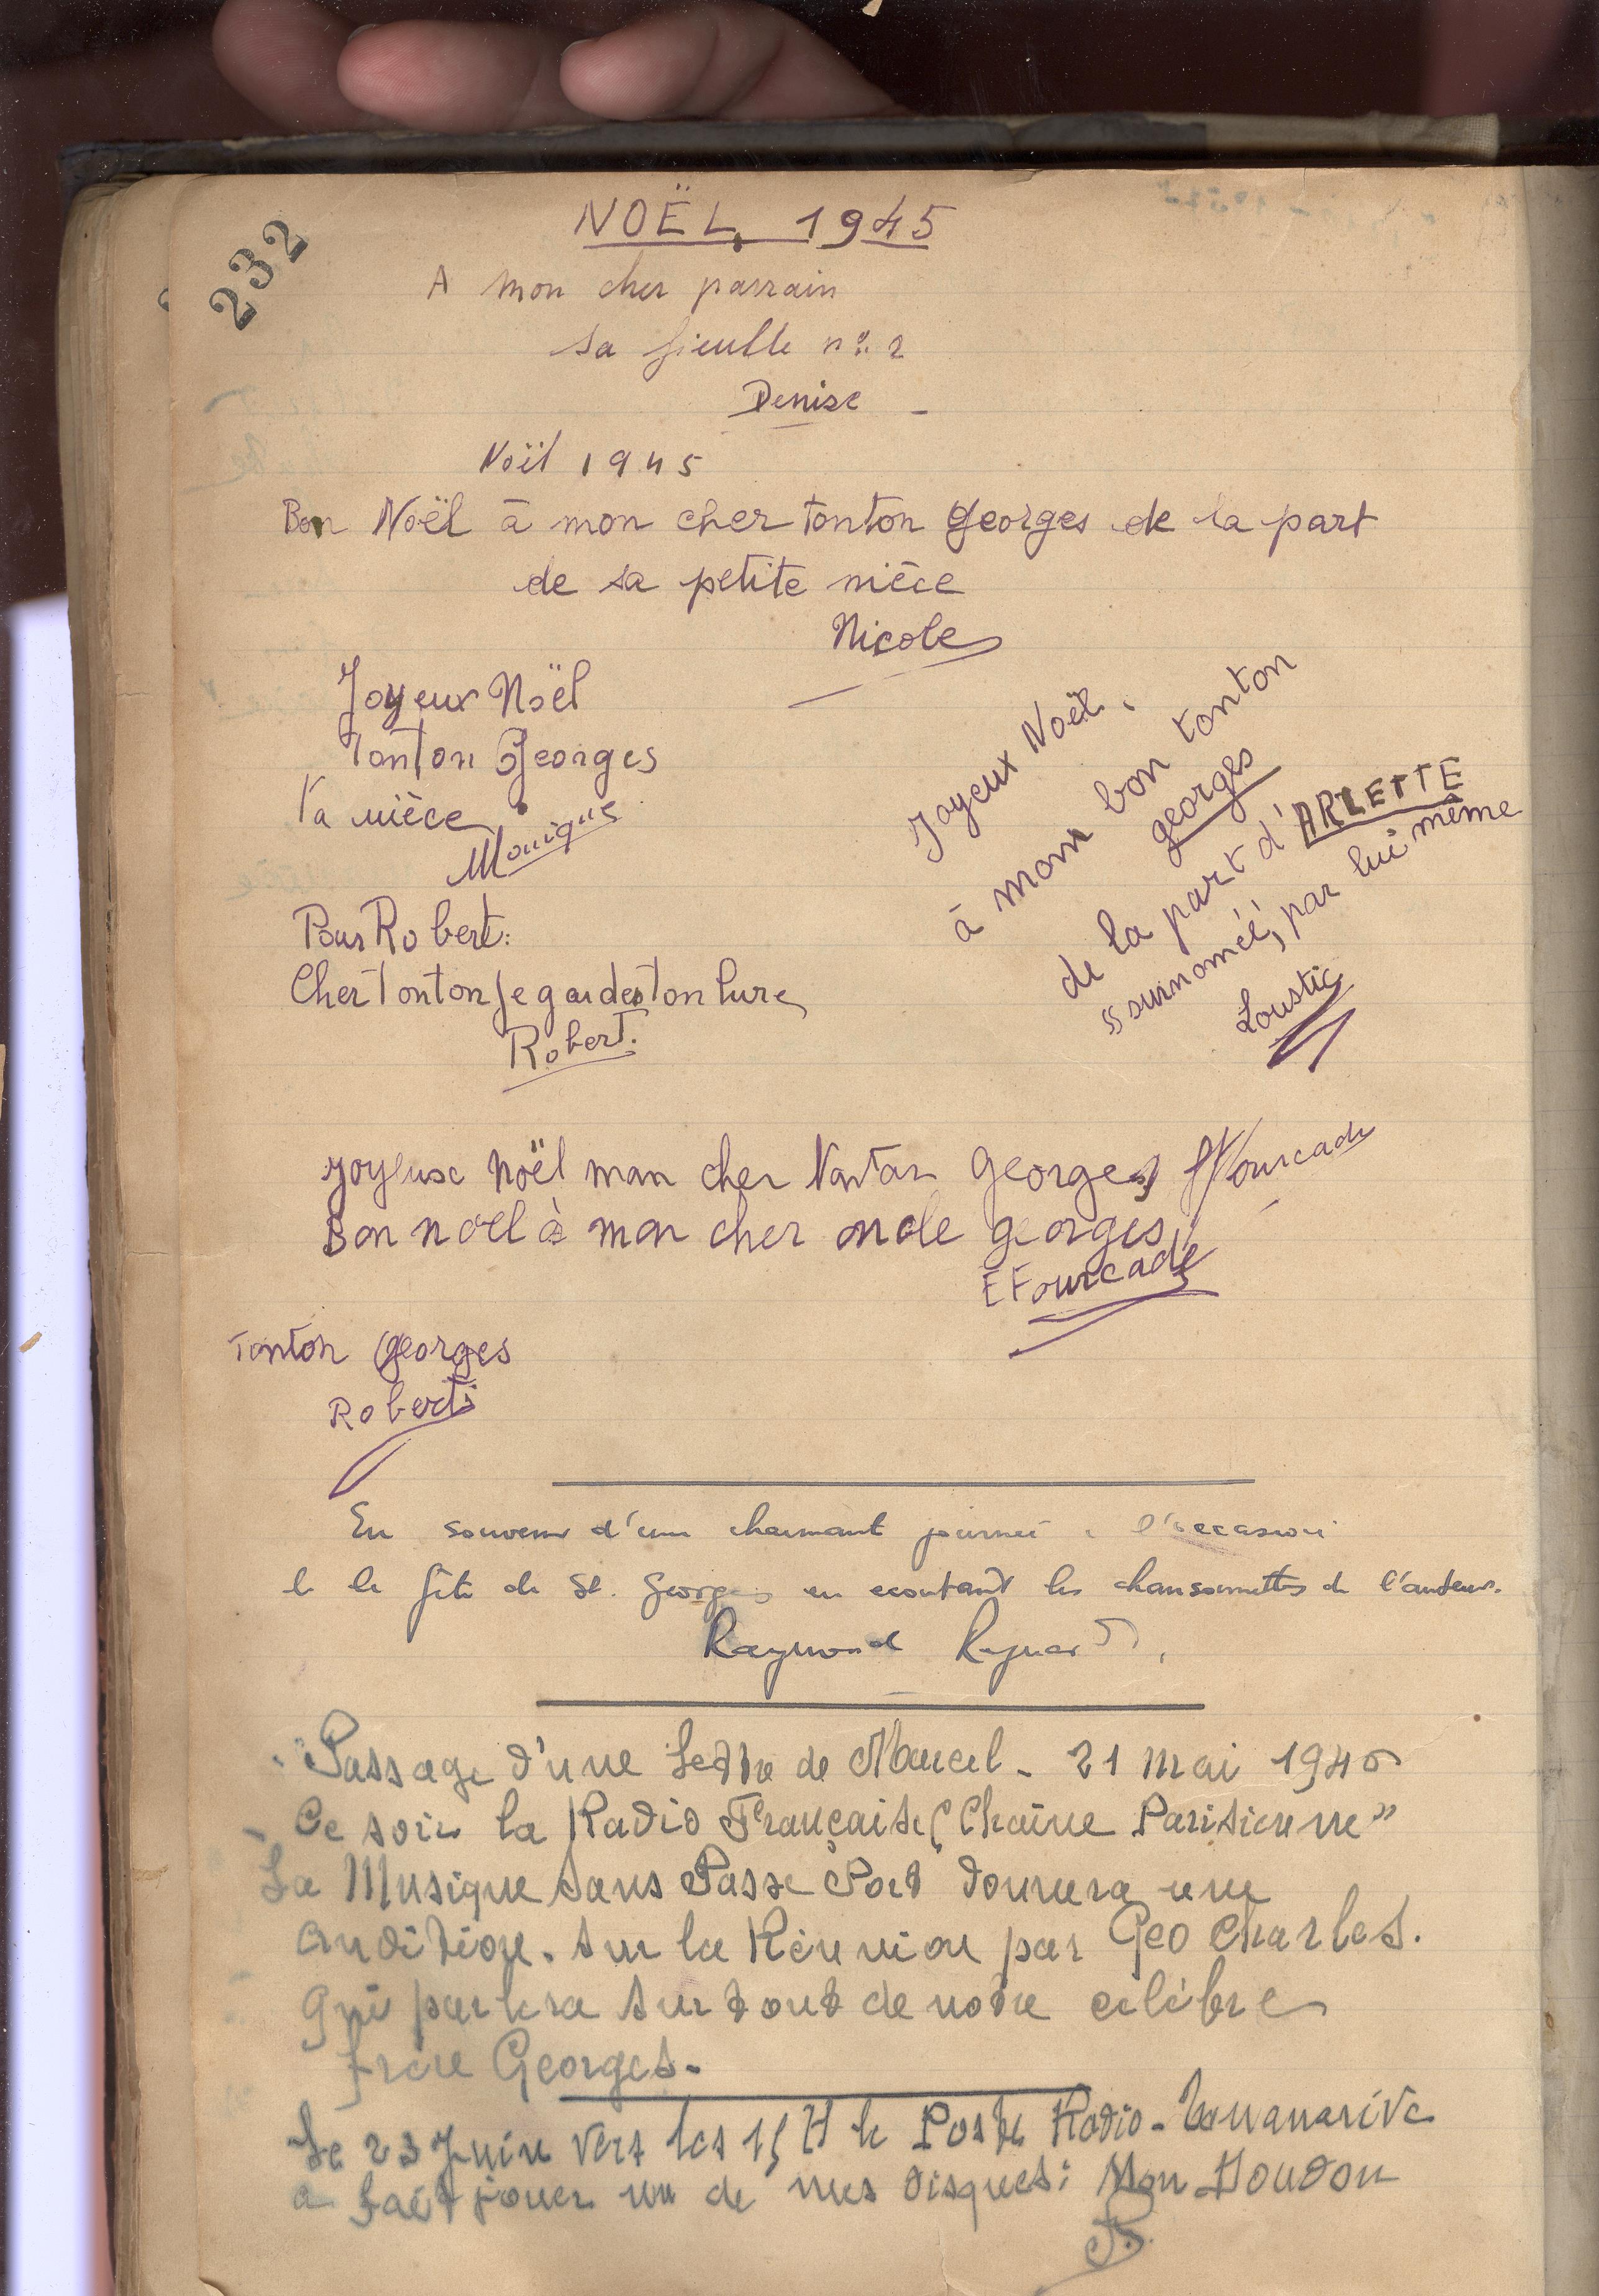 232
NOËL 1945
A mon cher parrain
sa fieulle n° 2
Denise -
Noël 1945
Bon Noël à mon cher tonton Georges de la part
de sa petite nièce
Nicole
Joyeux Noël
Tonton Georges
Ta nièce
Monique
Joyeux Noël.
à mon bon tonton
georges
de la part d'ARLETTE
"surnomée, par lui même
Loustic
Pour Robert:
Cher Tonton je gardes ton livre
Robert.
Joyeuse Noël mon cher Tonton Georges Fourcade
Bon noël à mon cher oncle georges
E Fourcade
Tonton Georges
Robert
En souvenir d'une charmant journée à l'occasion
de la fête de St. Georges en ecoutant les chansonnettes de l'auteur.
Raymond
Passage d'une Lettre de Marcel - 21 Mai 1946
- Ce soir la Radio Française (Chaîne Parisienne"
La Musique Sans Passe Port donnera une
audition. sur la Réunion par Geo Charles.
Qui parlera surtout de notre célèbre
frère Georges.
Le 23 Juin vers les 15 H le Poste Radio-Tananarive
a fait jouer un de mes disques: Mon Doudou